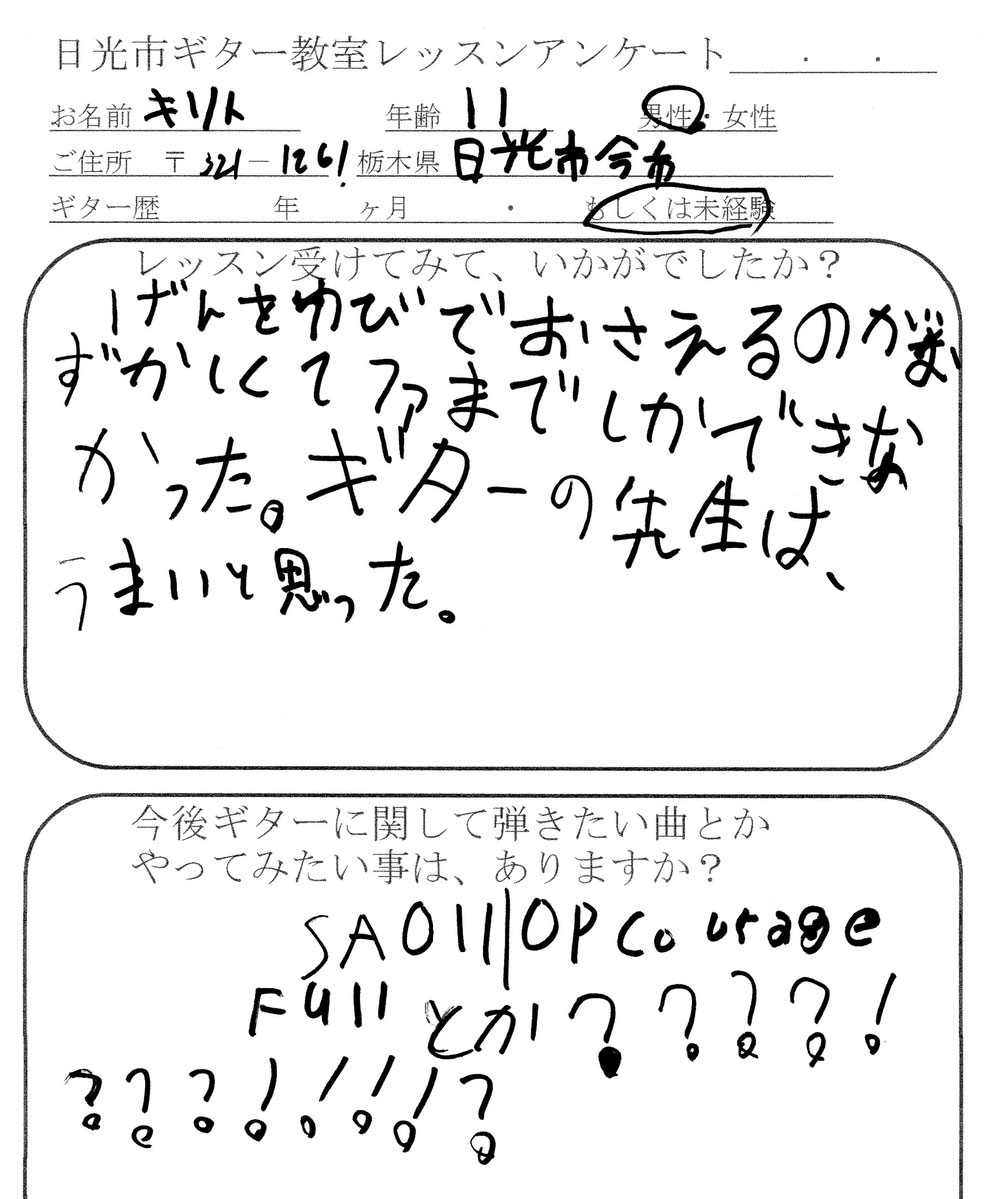 日光市ギター教室レッスンアンケート　・　・
お名前 キリト 年齢 11 男性・女性
ご住所 〒321-1261 栃木県 日光市今市
ギター歴 年 ヶ月 ・ もしくは未経験
レッスン受けてみて、いかがでしたか？
げんをゆびでおさえるのがむ
ずかしくてファまでしかできな
かった。ギターの先生は、
うまいと思った。
今後ギターに関して弾きたい曲とか
やってみたい事は、ありますか？
SAO OP Courage
Fullとか????!
???!!!!?